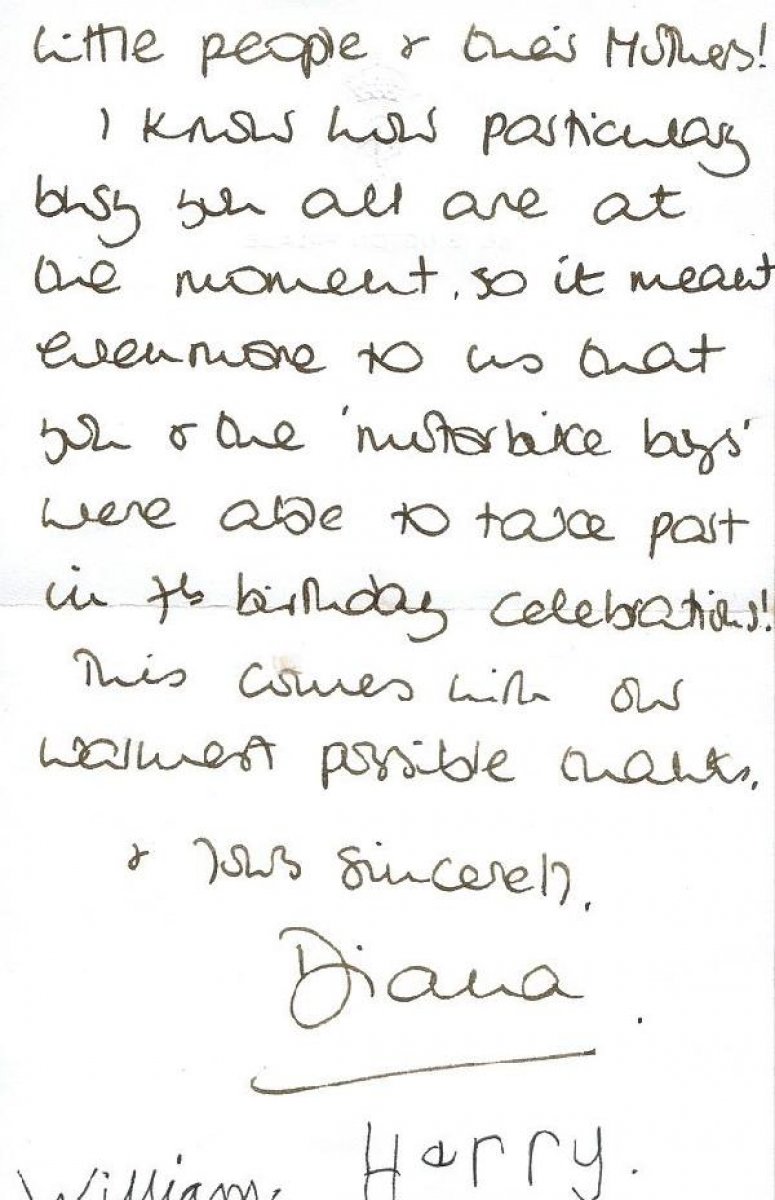 little people & their Mothers!
I know how particularly
busy you all are at
the moment, so it meant
even more to us that
you & the 'motorbike boys'
were able to take part
in 7th birthday celebrations!
This comes with our
warmest possible thanks,
& Yours sincerely,
Diana.
Harry.
William.